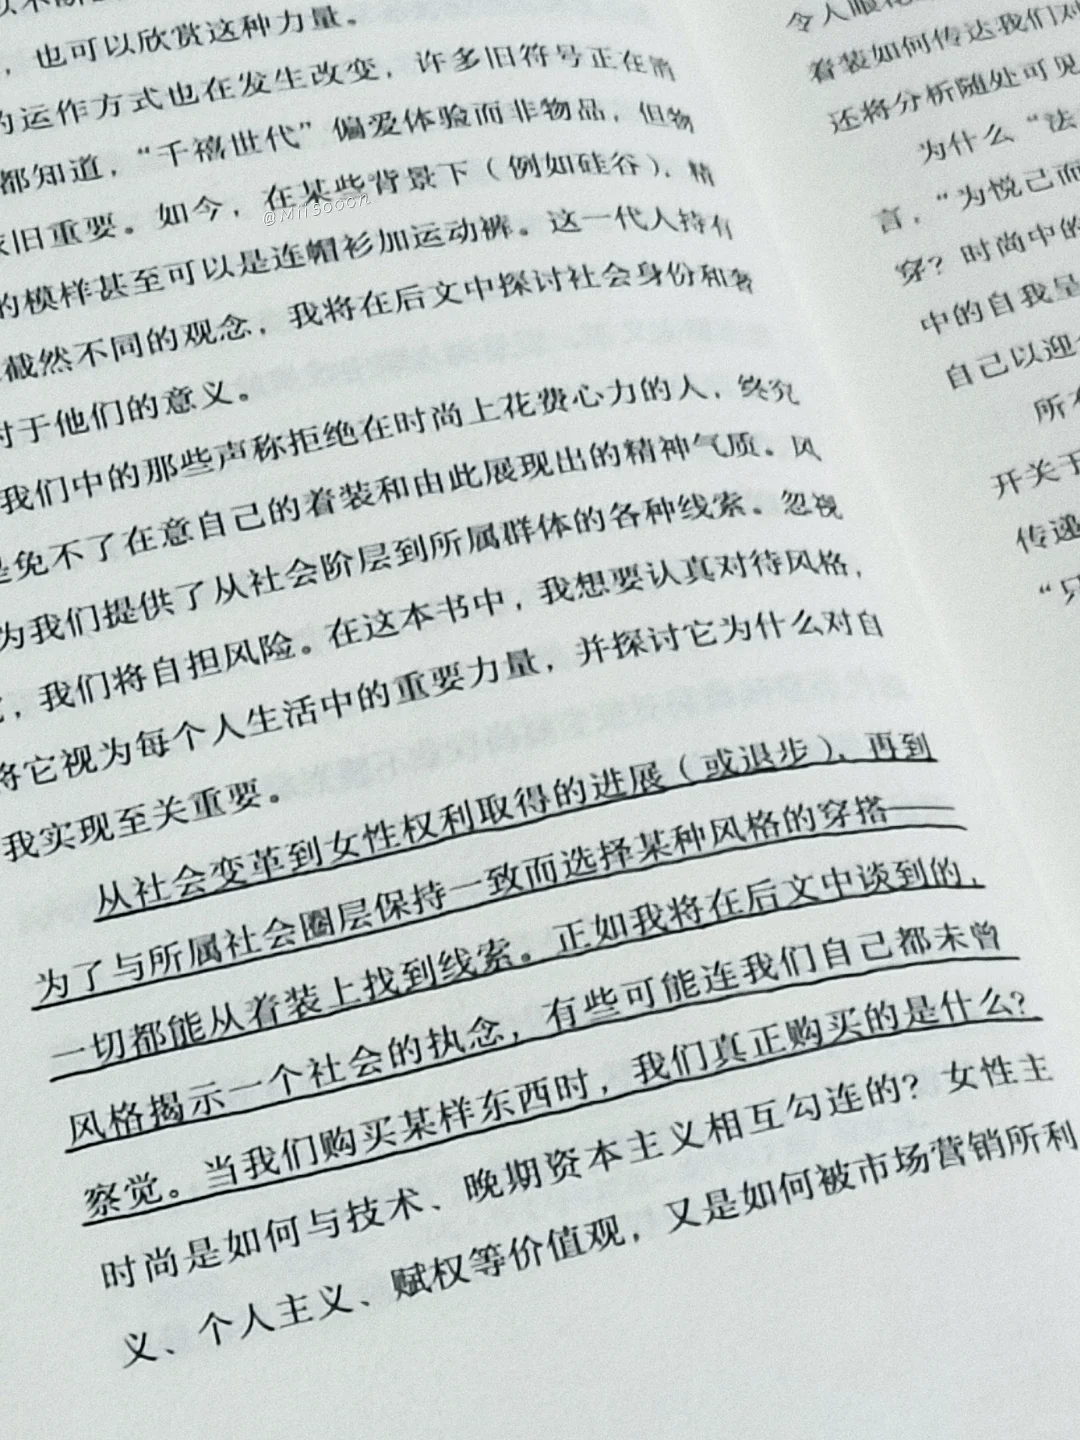 ，也可以欣赏这种力量。
的运作方式也在发生改变，许多旧符号正在消
都知道，“千禧世代”偏爱体验而非物品，但物
依旧重要。如今，在某些背景下（例如硅谷），精
的模样甚至可以是连帽衫加运动裤。这一代人持有
截然不同的观念，我将在后文中探讨社会身份和奢
对于他们的意义。
我们中的那些声称拒绝在时尚上花费心力的人，终究
是免不了在意自己的着装和由此展现出的精神气质。风
为我们提供了从社会阶层到所属群体的各种线索。忽视
，我们将自担风险。在这本书中，我想要认真对待风格，
将它视为每个人生活中的重要力量，并探讨它为什么对自
我实现至关重要。
从社会变革到女性权利取得的进展（或退步），再到
为了与所属社会圈层保持一致而选择某种风格的穿搭——
一切都能从着装上找到线索。正如我将在后文中谈到的，
风格揭示一个社会的执念，有些可能连我们自己都未曾
察觉。当我们购买某样东西时，我们真正购买的是什么？
时尚是如何与技术、晚期资本主义相互勾连的？女性主
义、个人主义、赋权等价值观，又是如何被市场营销所利
@Mi1sooon
令人眼花
着装如何传达我们对
还将分析随处可见
为什么“法
言，“为悦己而
穿？时尚中的
中的自我呈
自己以迎
所有
开关于
传递
“只